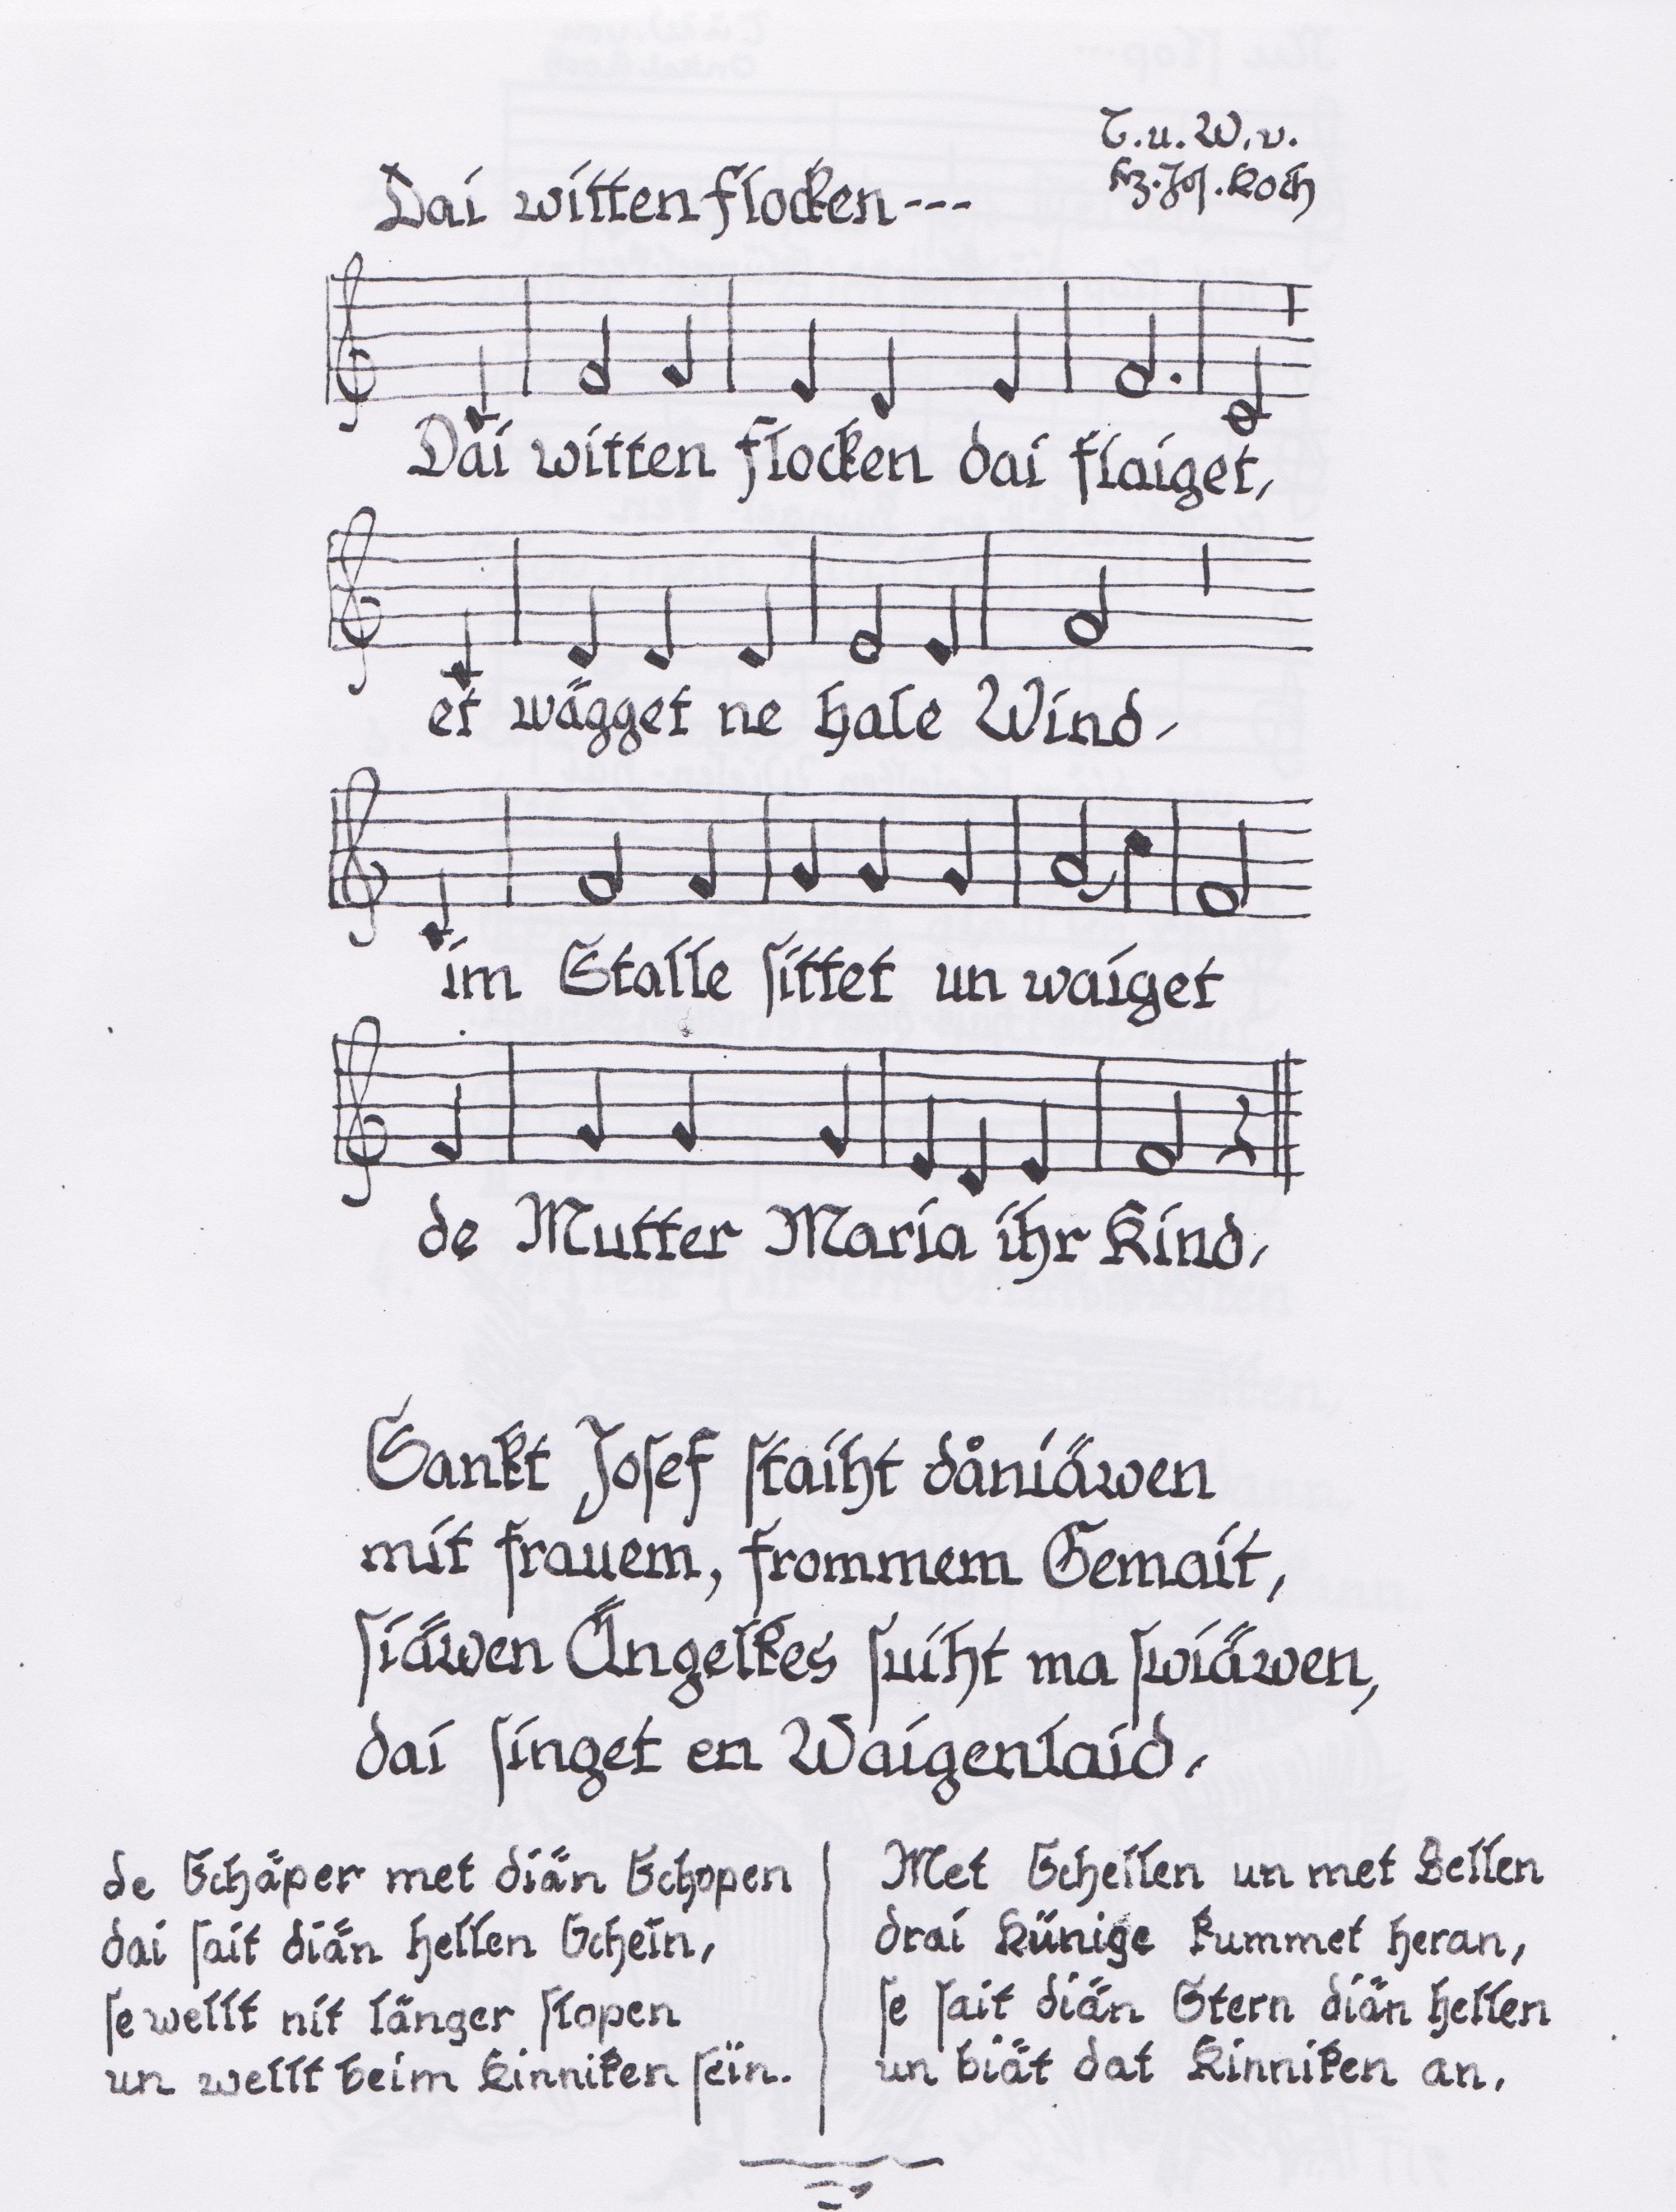 T. u. W. v.
Frz. Jos. Koch
Dai witten Flocken ---
Dai witten Flocken dai flaiget,
et wägget ne hale Wind.
im Stalle sittet un waiget
de Mutter Maria ihr Kind.
Sankt Josef staiht dåniäwen
mit frauem, frommem Gemait,
siäwen Ängelkes suiht ma swiäwen,
dai singet en Waigenlaid.
de Schäper met diän Schopen
dai sait diän hellen Schein,
se wellt nit länger slopen
un wellt beim Kinniken seïn.
Met Schellen un met Bellen
drai Künige kummet heran,
se sait diän Stern diän hellen
un biät dat Kinniken an.